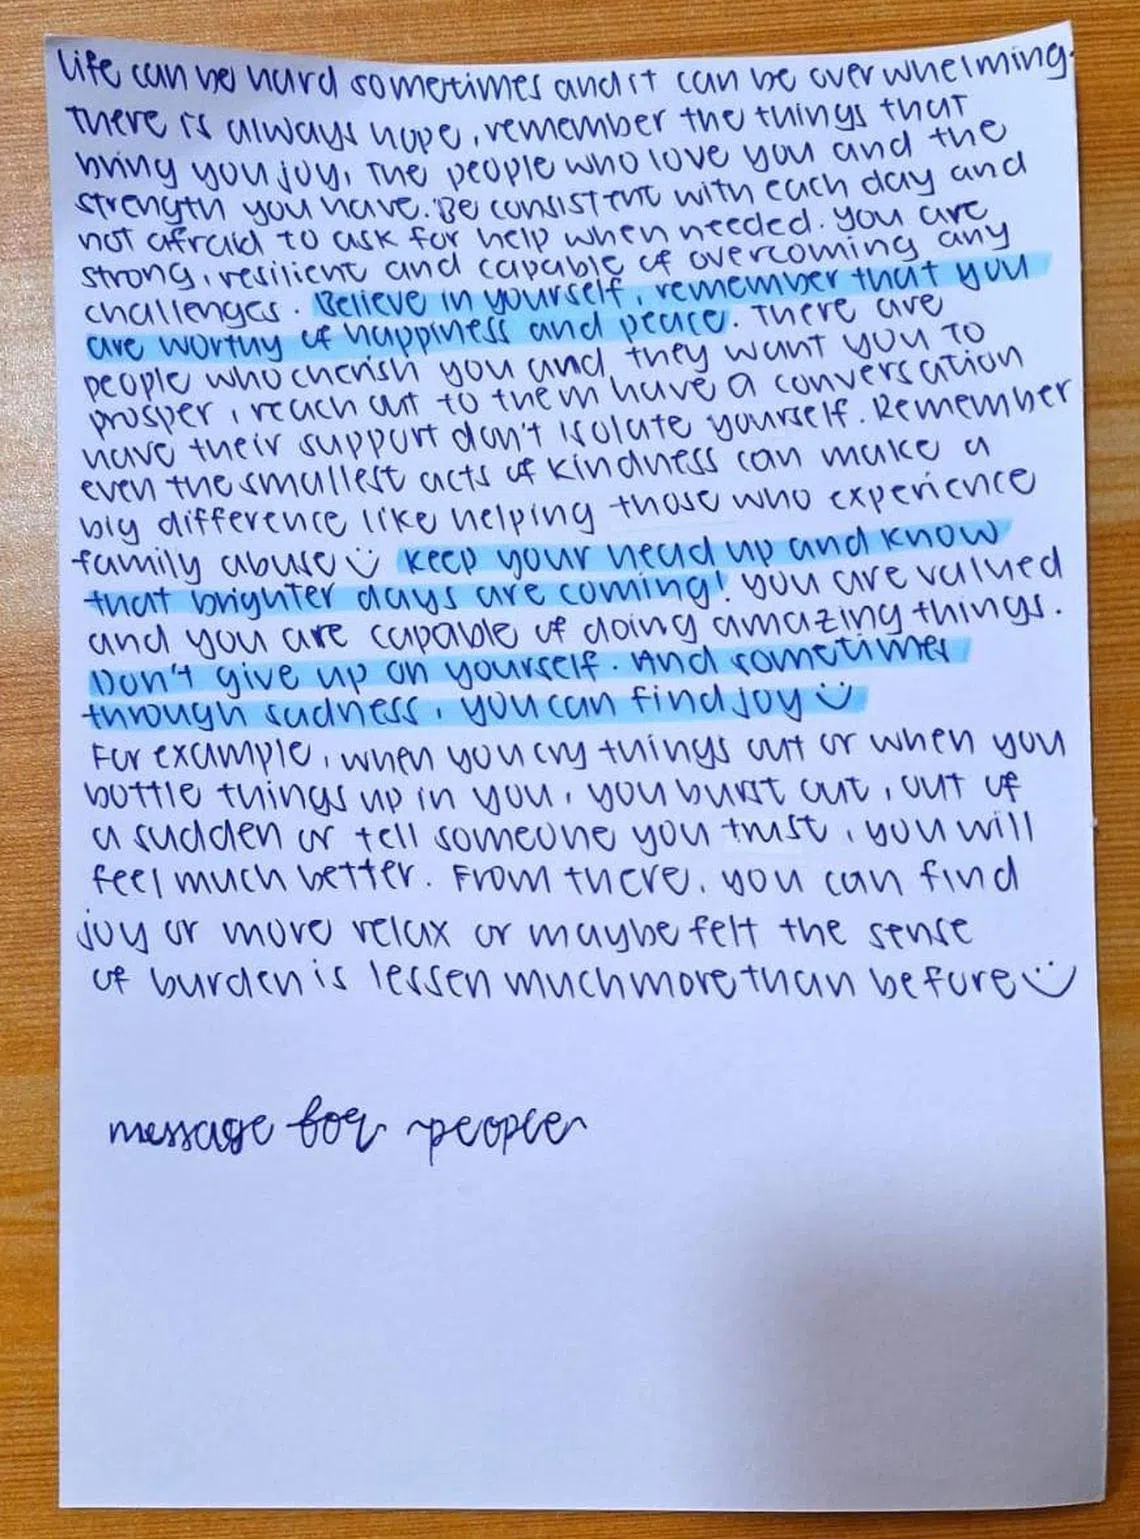 Life can be hard sometimes and it can be overwhelming.
There is always hope, remember the things that
bring you joy, The people who love you and the
strength you have. Be consistent with each day and
not afraid to ask for help when needed. You are
strong, resilient and capable of overcoming any
challenges. Believe in yourself, remember that you
are worthy of happiness and peace. There are
people who cherish you and they want you to
prosper, reach out to them have a conversation
have their support don't isolate yourself. Remember
even the smallest acts of kindness can make a
big difference like helping those who experience
family abuse :) keep your head up and know
that brighter days are coming! You are valued
and you are capable of doing amazing things.
Don't give up on yourself. And sometimes
through sadness, you can find joy :)
For example, when you cry things out or when you
bottle things up in you, you burst out, out of
a sudden or tell someone you trust, you will
feel much better. From there, you can find
joy or more relax or maybe felt the sense
of burden is lessen much more than before :)
message for people